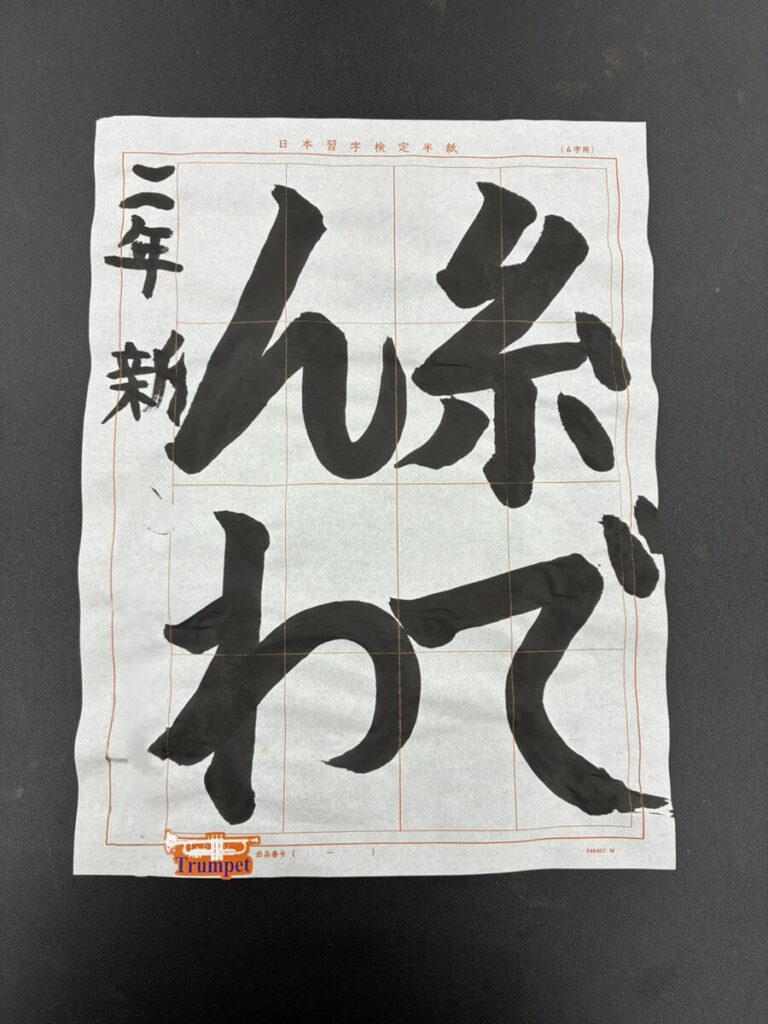 日本習字検定半紙
(4字用)
糸で
んわ
二年 新
Trumpet
出品番号 ( － )
240401 M